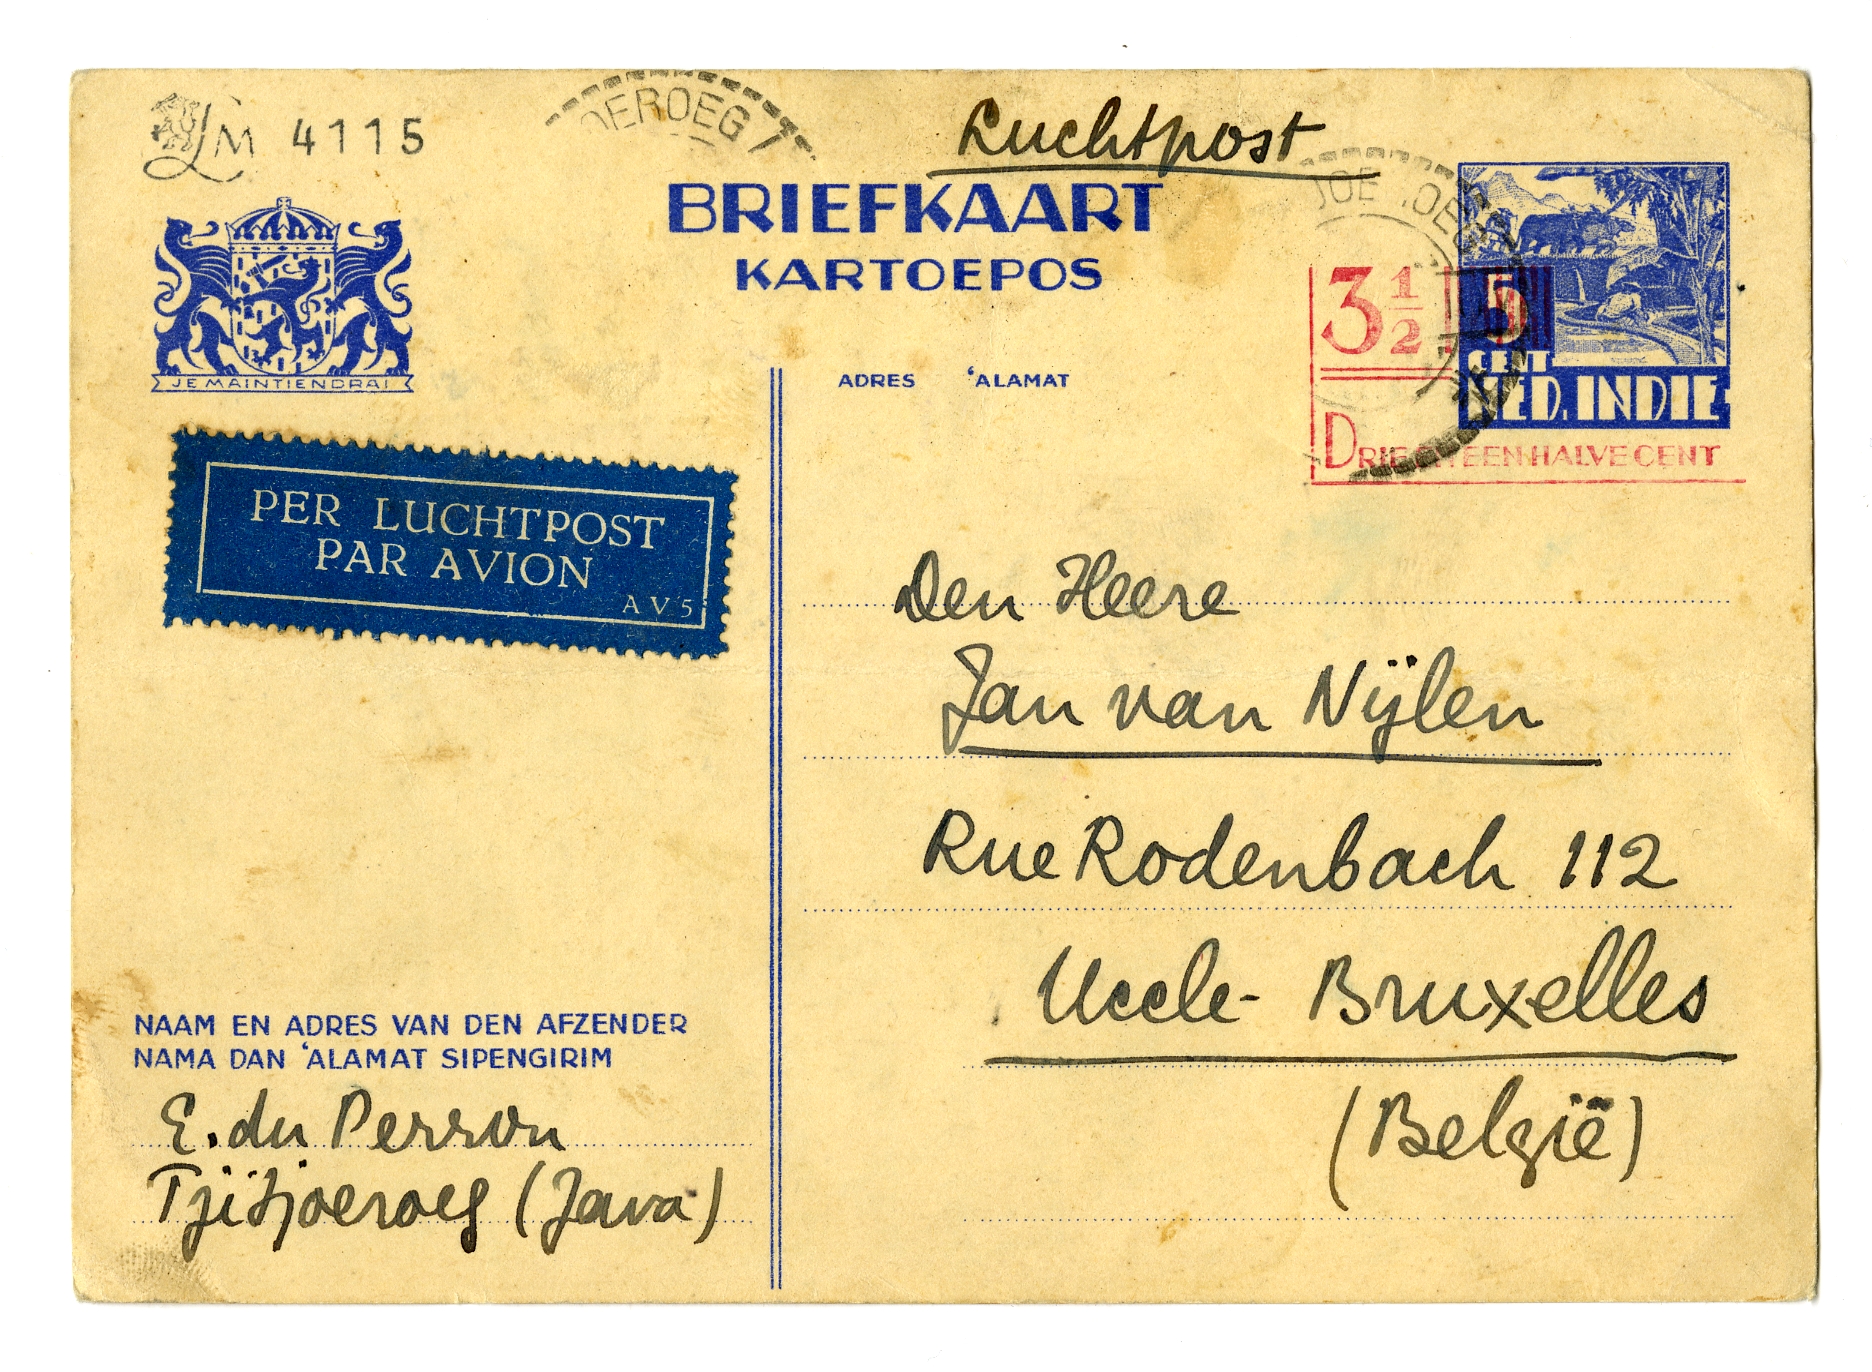 LM 4115
OEROEG
Luchtpost
BRIEFKAART
KARTOEPOS
JE MAINTIENDRAI
ADRES ‘ALAMAT
3 1/2
5
CENT
NED. INDIE
DRIE EN EEN HALVE CENT
PER LUCHTPOST
PAR AVION
AV5
Den Heere
Jan van Nijlen
Rue Rodenbach 112
Uccle - Bruxelles
(België)
NAAM EN ADRES VAN DEN AFZENDER
NAMA DAN ‘ALAMAT SIPENGIRIM
E. du Perron
Tjitjoeroeg (Java)